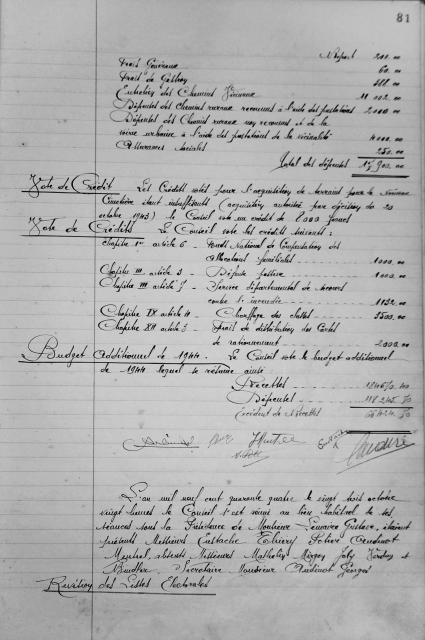 81
Report 200.00
Frais Généraux 60.00
Frais de Gestion
Entretien des Chemins Vicinaux 11 002.00
Dépenses des chemins ruraux reconnus à l'aide des prestations 2000.00
Dépenses des Chemins ruraux non reconnus et de la
voirie urbaine à l'aide des prestations de la vicinalité 4000.00
Assurances Sociales 250.00
Total des dépenses
Vote de Crédit Les Crédits votés pour l'acquisition de terrain pour le nouveau
Cimetière étant insuffisants (acquisition autorisée par décision du 20
octobre 1943) le Conseil vote un crédit de 8000 francs
Vote de Crédits Le Conseil vote les crédits suivants :
Chapitre 1er article 6 - Fonds National de Compensation des
Allocations familiales - 1000.00
Chapitre III article 3 - Dépense 1000.00
Chapitre III article 7 - Service départemental de secours
contre l'incendie - 1132.00
Chapitre IX article 4 - Chauffage des salles - 3500.00
Chapitre XII article 3 - Frais de distribution des Cartes
de rationnement - 2000.00
Budget additionnel de 1944. Le Conseil vote le budget additionnel
de 1944 lequel se résume ainsi
Recettes
Dépenses
excédent de Recettes
L'an mil neuf cent quarante quatre le vingt trois octobre
vingt heures le Conseil s'est réuni au lieu habituel de ses
séances sous la Présidence de Monsieur Lemaire Gustave, étaient
présents Messieurs Eustache Thiéry Audinot
absents Messieurs et
Secrétaire Monsieur Audinot Georges
Révision des Listes Electorales